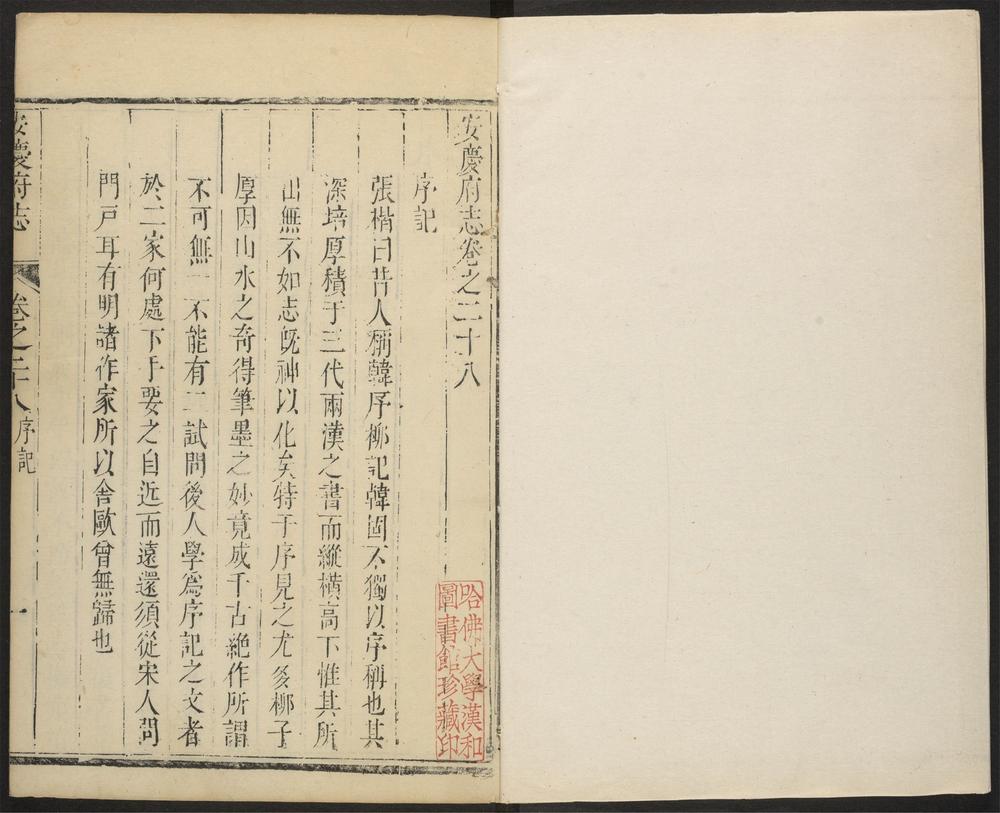 安慶府志卷之二十八
序記
張楷曰昔人稱韓序柳記韓固不獨以序稱也其
深培厚積于三代兩漢之書而縱橫高下惟其所
出無不如志旣神以化矣特于序見之尤多柳子
厚因山水之奇得筆墨之妙竟成千古絕作所謂
不可無一不能有二試問後人學爲序記之文者
於二家何處下手要之自近而遠還須從宋人問
門戶耳有明諸作家所以舍歐曾無歸也
安慶府志
卷之二十八
序記
一
哈佛大學漢和
圖書館珍藏印